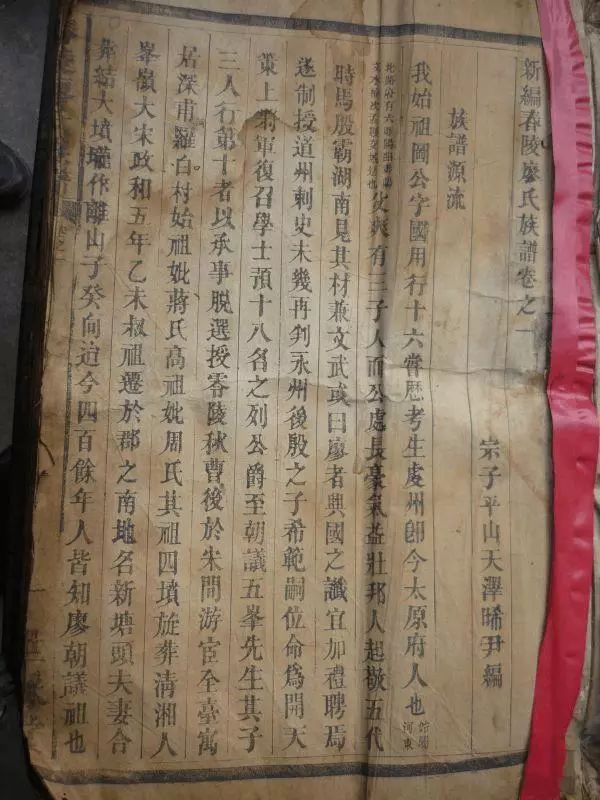 新編舂陵廖氏族譜卷之一
宗子平山天澤晞尹編
族譜源流
我始祖圖公字國用行十六嘗歷考生處州卽今太原府人也
父爽有三子人而公處長豪氣益壯邦人起敬五代
時馬殷霸湖南見其材兼文武或曰廖者興國之讖宜加禮聘焉
遂制授道州刺史未幾再判永州後殷之子希範嗣位命爲開天
策上將軍復召學士預十八名之列公爵至朝議五峯先生其子
三人行第十者以承事脫選授零陵秋曹後於宋間游宦至臺寓
居深甫羅白村始祖妣蔣氏高祖妣周氏其祖四墳旋葬清湘人
峯嶺大宋政和五年乙未叔祖遷於郡之南地名新塘頭夫妻合
葬結大墳塋作離山子癸向迨今四百餘年人皆知廖朝議祖也